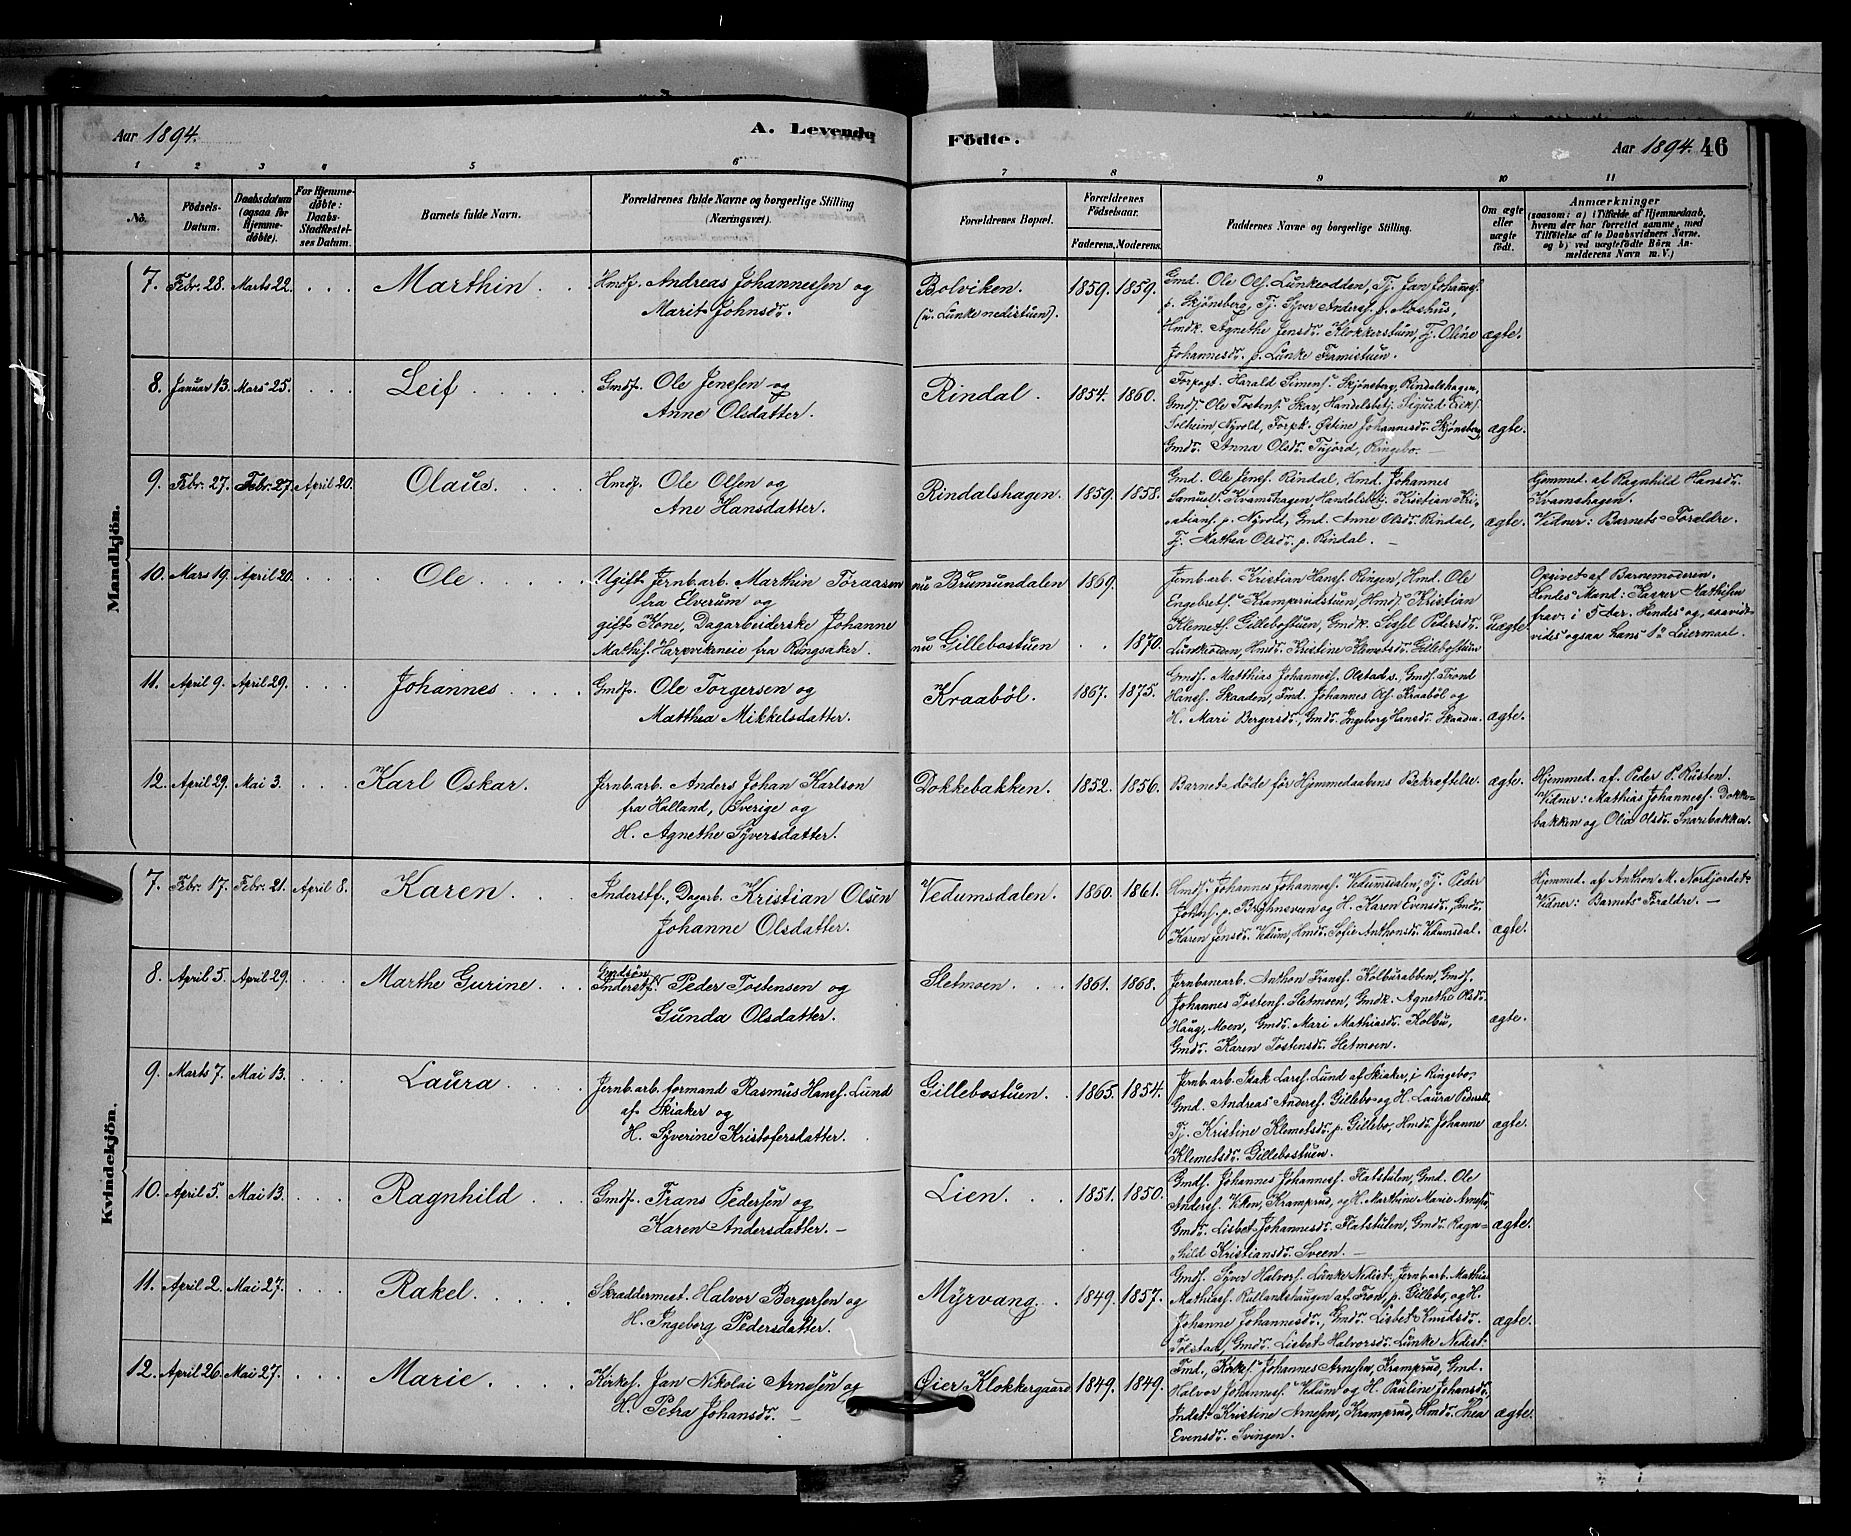 Aar 1894. A. Levende Födte. Aar 1894. 46
1 2 3 4 5 6 7 8 9 10 11
No.
Födsels-
Datum.
Daabsdatum
(ogsaa for
Hjemme-
døbte).
For Hjemme-
døbte:
Daabs-
Stadfæstel-
ses Datum.
Barnets fulde Navn.
Forældrenes fulde Navne og borgerlige Stilling
(Næringsvei).
Forældrenes Bopæl.
Forældrenes
Födselsaar.
Faderens. Moderens.
Faddernes Navne og borgerlige Stilling.
Om ægte
eller
uægte
født.
Anmærkninger
(saasom: a) i Tilfælde af Hjemmedaab,
hvem der har forrettet samme, med
Tilföielse af to Daabsvidners Navne,
og b) ved uægtefödte Börn An-
melderens Navn m. V.)
Mandkjön.
7. Febr. 28. Marts 22. . . . Marthin . . Hmdf. Andreas Johannessen og
Marit Johnsdr.
Bolviken.
(u. Lunke nedistuen).
1859. 1859.
Gmd. Ole Ols. Lunkeodden, Tj. Jan Johannesf.
p. Skjönsberg, Tj. Syver Andersf. p. Moshus,
Hmdk. Agnethe Jensdr. Klokkerstuen, Tj. Oline
Johannesdr. p. Lunke Fremistuen.
ægte.
8. Januar 13. Mars 25. . . . Leif . . . . . Gmdf. Ole Jensen og
Anne Olsdatter.
Rindal . 1854. 1860.
Forpagt. Harald Simens. Skjönsberg, Rindalshagen,
Gmds. Ole Tostens. Skar, Handelsbetj. Sigurd Eriks.
Solheim, Nyvold, Forpk. Östine Johannesdr. Skjönsberg
Gmdr. Anna Olsdr. Tujord, Ringebo.
ægte.
9. Febr. 27. Febr. 27. April 20. Olaus. . . . Hmdf. Ole Olsen og
Ane Hansdatter.
Rindalshagen. 1859. 1858.
Gmd. Ole Jens. Rindal, Hmd. Johannes
Samuels. Kvamshagen, Handelsbet. Kristian Kri-
stians. p. Nyvold, Gmd. Anne Olsdr. Rindal,
Tj. Mathea Olsdr. p. Rindal. —
ægte.
Hjemmed. af Ragnhild Hansdr.
Kvamshagen.
Vidner: Barnets Forældre.
10. Mars 19. April 20. . . . . Ole . . . . . Ugift Jernb.arb. Marthin Toraasen
fra Elverum og
gift Kone, Dagarbeiderske Johanne
Mathis. Harpvikeneie fra Ringsaker.
nu Brumundalen 1869.
nu Gillebostuen . . 1870.
Jernb.arb. Kristian Hans. Ringen, Hmd. Ole
Engebrets. Kramprudstuen, Hmds. Kristian
Klemets. Gillebostuen, Gmdk. Sidsel Pedersdr.
Lunkeoden, Hmdr. Kristine Klemetsdr. Gillebostuen
uægte
Opgivet af Barnemoderen.
Hendes Mand: Kasper Mathisen
frav. i 5 Aar. Hendes og, saavidt
vides ogsaa hans 1ste Leiermaal.
11. April 9. April 29. . . . Johannes . . . . Gmdf. Ole Torgersen og
Matthea Mikkelsdatter.
Kraaböl. 1867. 1875.
Gmds. Matthias Johannesf. Olstad s., Gmds. Trond
Hans. Skaaden, Fmd. Johannes Ols. Kraaböl og
H. Mari Bergersdr., Gmdr. Ingeborg Hansdr. Skaaden.
ægte.
12. April 29. Mai 3. . . . Karl Oskar. Jernb.arb. Anders Johan Karlson
fra Halland, Sverige og
H. Agnethe Syversdatter.
Dokkebakken. 1852. 1856.
Barnet döde för Hjemmedaabens Bekræftelse.
ægte.
Hjemmed. af Peder P. Risten.
Vidner: Mathias Johannesf. Dokke-
bakken og Olia Olsdr. Snarebakken.
Kvindekjön.
7. Febr. 17. Febr. 21. April 8. Karen . . . Inderstf., Dagarb. Kristian Olsen
Johanne Olsdatter.
Vedumsdalen. 1860. 1861.
Hmds. Johannes Johannesf. Vedumsdalen, Tj. Peder
Johans. p. Bryhnsveen og H. Karen Evensdr., Gmdr.
Karen Jensdr. Vedum, Hmdr. Sofie Anthonsdr. Vedumsdal.
ægte.
Hjemmed. af Anthon M. Nordjordet.
Vidner: Barnets Forældre. —
8. April 5. April 29. . . . Marthe Gurine . . . Gmdsön
Inderstf. Peder Tostensen og
Gunda Olsdatter.
Sletmoen . . . 1861. 1868.
Jernbanearb. Anthon Frans. Kolburabben, Gmds.
Johannes Tostens. Sletmoen, Gmdk. Agnethe Olsdr.
Haug, Moen, Gmdr. Mari Mathiasdr. Kolbu,
Gmdr. Karen Tostensdr. Sletmoen.
ægte.
9. Marts 7. Mai 13. . . . Laura . . . . Jernb.arb. formand Rasmus Hans. Lund
af Skiaker og
H. Syverine Kristofersdatter.
Gillebostuen. . 1865. 1854.
Jernb.arb. Isak Lars. Lund af Skiaker, i Ringebo,
Gmd. Andreas Anders. Gillebo og H. Laura Pedersd.
Tj. Kristine Klemetsdr. p. Gillebo, Hmdr. Johanne
Klemetsdr. Gillebostuen.
ægte.
10. April 5. Mai 13. . . . Ragnhild . . . Gmdf. Frans Pedersen og
Karen Andersdatter. —
Lien . . . 1851. 1850.
Gmds. Johannes Johannesf. Flatstulen, Gmd. Ole
Anders. Viken, Kramprud, og H. Marthine Marie Arnesdr.
Gmdr. Lisbet Johannesdr. Flatstulen, Gmdr. Ragn-
hild Kristiansdr. Sveen. —
ægte.
11. April 2. Mai 27. . . . Rakel . . . . . Skraddermest. Halvor Bergersen og
H. Ingeborg Pedersdatter.
Myrvang. . 1849. 1857.
Gmds. Syver Halvors. Lunke Nedist., Jernb.arb. Mathia
Mathiasf. Rullandshaugen af Fron, p. Gillebo, og H.
Johanne Johannesdr., Gmdr. Lisbet Knudsdr.
Tolstad, Gmdr. Lisbet Halvorsdr. Lunke Nedist.
ægte.
12. April 26. Mai 27. . . . Marie . . . . . Kirkes. Jan Nikolai Arnesen og
H. Petra Johansdr. —
Öier Klokkergaard 1849. 1849.
Fmd., Kirkes. Johannes Arnesen, Kramprud, Gmd.
Halvor Johannesf. Vedum og H. Pauline Johansdr.
Indst. Kristine Arnesen, Kramprud, Hmdr. Thea
Evensdr. Svingen.
ægte.